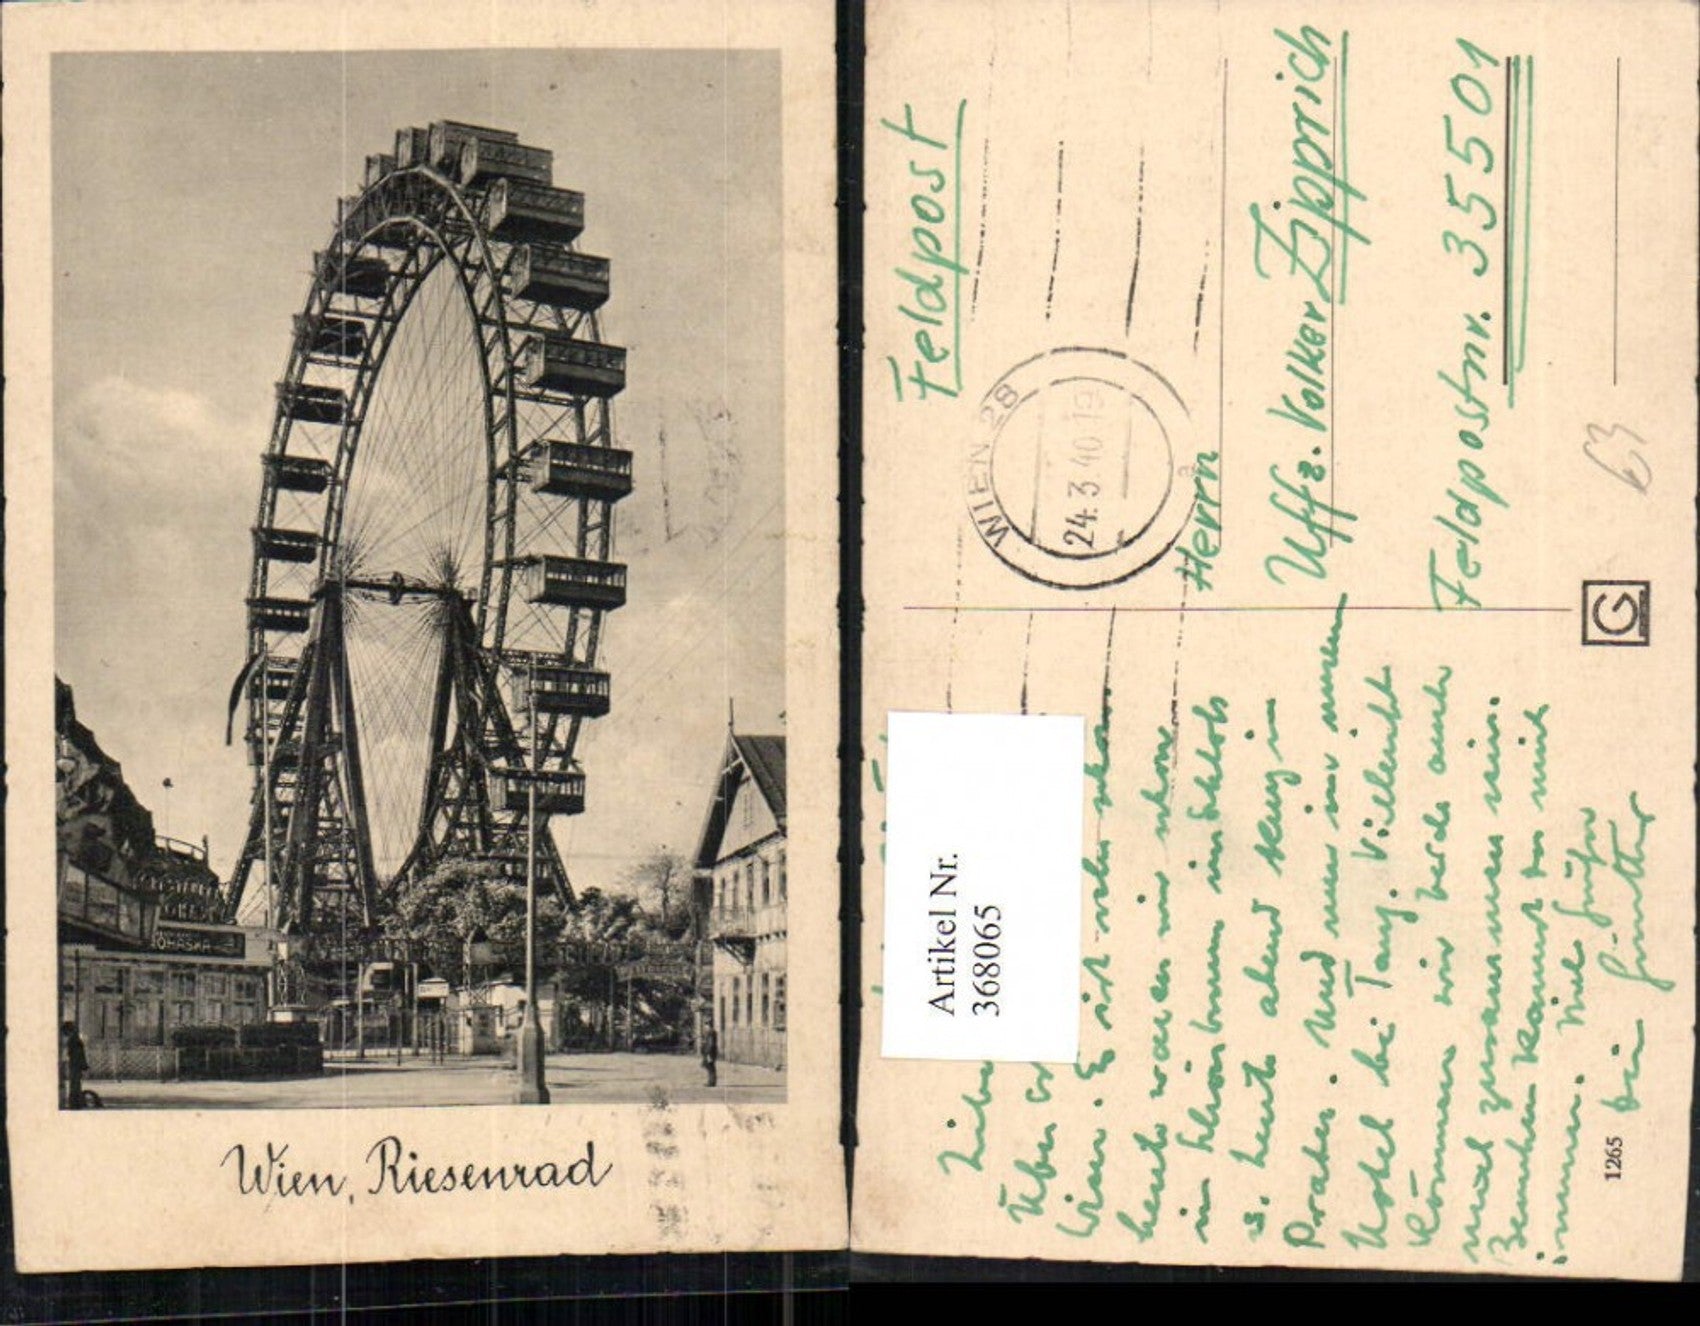 OHASKA
Wien, Riesenrad
Feldpost
WIEN 28
24. 3. 40. 19
Herrn
Uffz. Volker Zipprich
Feldpostnr. 35501
63
G
Artikel Nr.
3688065
Über
Wien. Es ist sehr schön
heute waren wir schon
in Schönbrunn im Schloß
u. heute abend
Prater. Und nun in unserem
Hotel bei Tanz. Vielleicht
können wir beide auch
mal zusammen sein.
kannst du mich
immer. Viele Grüße
Dein Günther
1265